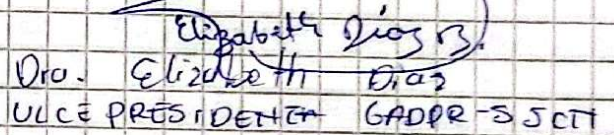 Elizabeth Díaz B.
Dra. Elizabeth Diaz
VICE PRESIDENTA GADPR-S JCH